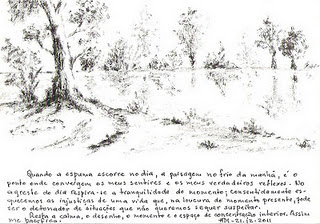 Quando a espuma escorre no dia, a paisagem no frio da manhã, é o
ponto onde convergem os meus sentires e os meus verdadeiros reflexos. No
agreste do dia respira-se a tranquilidade do momento; consentidamente es-
quecemos as injustiças de uma vida que, na loucura do momento presente, pode
ser o detonador de situações que não queremos sequer suspeitar.
Resta a calma, o desenho, o momento e o espaço de concentração interior. Assim
me pacifico. -21.12.2011